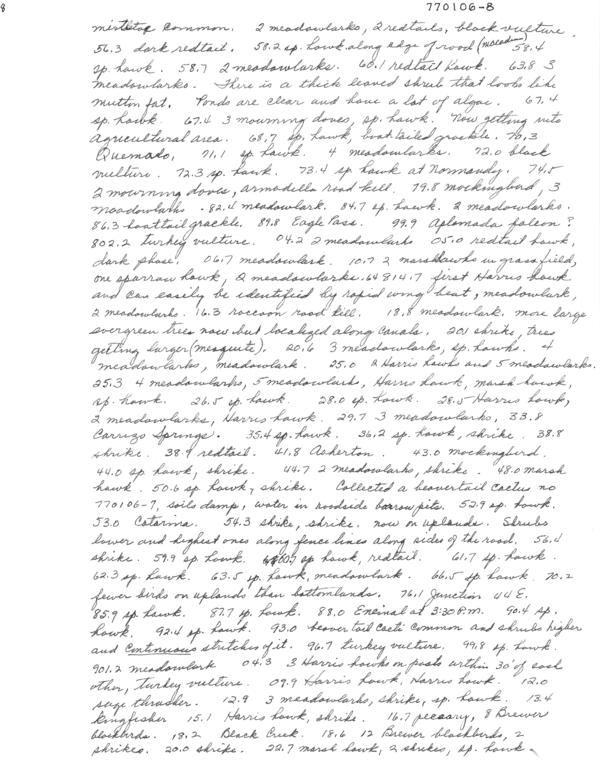 8
770106-8
mistletoe common. 2 meadowlarks, 2 redtails, black vulture.
56.3 dark redtail. 58.2 sp. hawk along edge of road 58.4
sp. hawk. 58.7 2 meadowlarks. 60.1 redtail hawk. 63.8 3
meadowlarks. There is a thick leaved shrub that looks like
mutton fat. Ponds are clear and have a lot of algae. 67.4
sp. hawk 67.4 3 mourning doves, sp. hawk. Now getting into
agricultural area. 68.7 sp. hawk, boat tailed grackle. 70.3
Quemado, 71.1 sp. hawk. 4 meadowlarks. 72.0 black
vulture. 72.3 sp. hawk. 73.4 sp hawk at Normandy. 74.5
2 mourning doves, armadillo road kill. 79.8 mockingbird, 3
meadowlarks. 82.4 meadowlark. 84.7 sp. hawk. 2 meadowlarks.
86.3 boattail grackle. 89.8 Eagle Pass. 99.9 Aplomado falcon?
802.2 turkey vulture. 04.2 2 meadowlarks 05.0 redtail hawk,
dark phase, 06.7 meadowlark. 10.7 2 marsh hawks in grass field,
one sparrow hawk, 2 meadowlarks. 814.7 first Harris hawk
and can easily be identified by rapid wing beat, meadowlark,
2 meadowlarks. 16.3 raccoon road kill. 18.8 meadowlark. more large
evergreen trees now but localized along canals. 201 shrike, trees
getting larger (mesquite). 20.6 3 meadowlarks, sp. hawks. 4
meadowlarks, meadowlark. 25.0 2 Harris hawks and 5 meadowlarks.
25.3 4 meadowlarks, 5 meadowlark, Harris hawk, marsh hawk,
sp. hawk. 26.5 sp. hawk. 28.0 sp. hawk. 28.5 Harris hawk,
2 meadowlarks, Harris hawk. 29.7 3 meadowlarks, 33.8
Carrizo Springs. 35.4 sp. hawk. 36.2 sp. hawk, shrike. 38.8
shrike. 38.9 redtail. 41.8 Asherton. 43.0 mockingbird.
44.0 sp. hawk, shrike. 44.7 2 meadowlarks, shrike. 48.0 marsh
hawk. 50.6 sp. hawk, shrike. Collected a beavertail cactus no
770106-7, soils damp, water in roadside barrow pits. 52.9 sp. hawk.
53.0 Catarina. 54.3 shrike, shrike. now on uplands. Shrubs
lower and highest ones along fence lines along sides of the road. 56.4
shrike. 59.9 sp. hawk. sp hawk, redtail. 61.7 sp. hawk.
62.3 sp. hawk. 63.5 sp. hawk, meadowlark. 66.5 sp. hawk. 70.2
fewer birds on uplands than bottomlands. 76.1 Junction 44 E.
85.9 sp. hawk. 87.7 sp. hawk. 88.0 Encinal at 3:30 P.M. 90.4 sp.
hawk. 92.4 sp. hawk. 93.0 beaver tail cacti common and shrubs higher
and continuous stretches of it. 96.7 turkey vulture. 99.8 sp. hawk.
901.2 meadowlark 04.3 3 Harris hawks on posts within 30' of each
other, turkey vulture. 09.9 Harris hawk, Harris hawk. 12.0
sage thrasher. 12.9 3 meadowlarks, shrike, sp. hawk. 13.4
kingfisher 15.1 Harris hawk, shrike. 16.7 peccary, 8 Brewer
blackbirds. 18.2 Black Creek. 18.6 12 Brewer blackbirds, 2
shrikes. 20.0 shrike. 22.7 marsh hawk, 2 shrikes, sp. hawk.